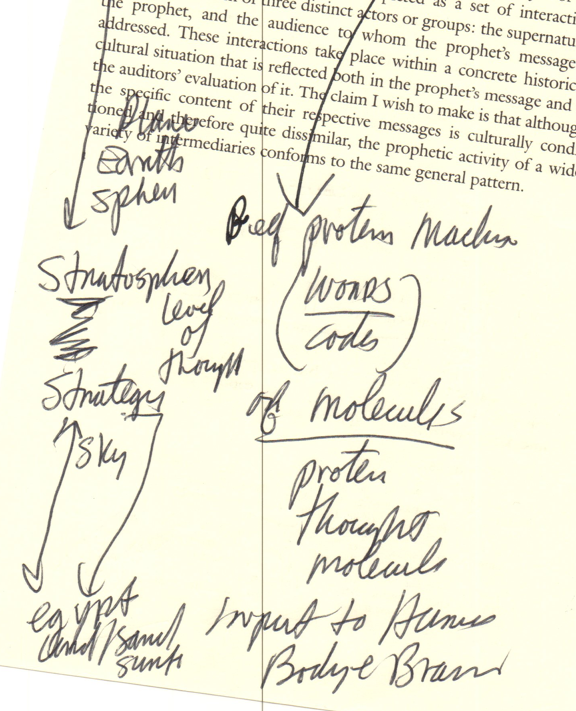 as a set of interacti
of three distinct actors or groups: the supernatu
the prophet, and the audience to whom the prophet's message
addressed. These interactions take place within a concrete historic
cultural situation that is reflected both in the prophet's message and
the auditors' evaluation of it. The claim I wish to make is that althoug
the specific content of their respective messages is culturally cond
tioned and therefore quite dissimilar, the prophetic activity of a wid
variety of intermediaries conforms to the same general pattern.
earth
sphere
Stratosphere
level
of
thought
Strategy
sky
egypt
and/sand
protein Machin
(words
codes)
of molecules
protein
thought
molecule
input to Human
Body & Brain